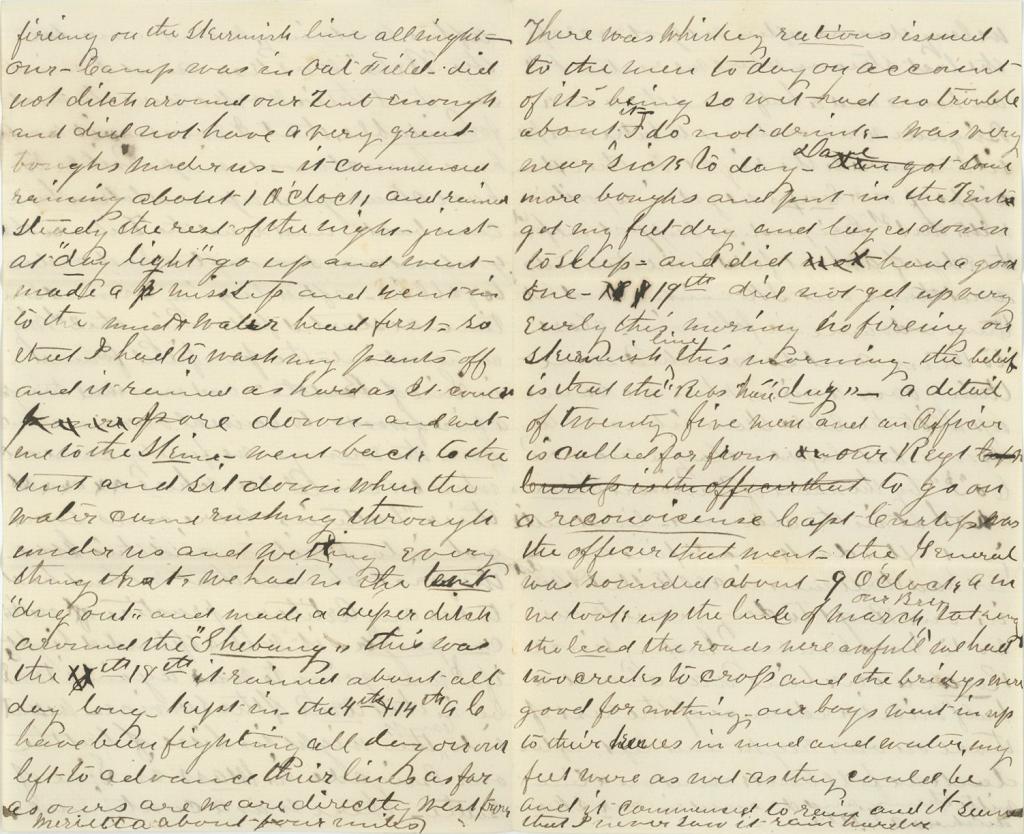 fireing on the skirmish line all night -
our - Camp was in Oat Field - did
not ditch around our Tent enough
and did not have a very great
boughs under us - it commenced
raining about 1 O'Clock, and rained
steady the rest of the night - just
at "day light" go up and went
made a misstep and went in
to the mud & water head first = so
that I had to wash my pants off
and it rained as hard as it could
pore down - and wet
me to the Skine - went back to the
tent and sit down when the
water came rushing through
under us and wetting every
thing that, we had in the tent
"dug out" and made a deeper ditch
around the "Shebang" this was
the 18th it rained about all
day long - kept in - the 4th & 14th A C
have been fighting all day on our
left to advance their lines as far
as ours are we are directly west from
Merietta about four miles)
There was whiskey rations issued
to the men to day on account
of it's being so wet had no trouble
about it I do not drink - was very
near sick to day - Dave got some
more boughs and put in the Tent
got my feet dry and layed down
to sleep - and did have a good
one - 19th did not get up very
early this morning no fireing on
skirmish line this morning - the belief
is that the "Rebs have dug" - a detail
of twenty five men and an Officer
is called for from our Regt
Curtis is the officer that to go on
a reconoicense Capt Curtis was
the officer that went - the General
was sounded about 9 O'Clock A M
we took up the line of march our Brig taking
the lead the roads were awfull we had
two creeks to cross and the bridges were
good for nothing, our boys went in up
to their knees in mud and water, my
feet were as wet as they could be
and it commenced to rain and it seems
that I never saw it rain harder